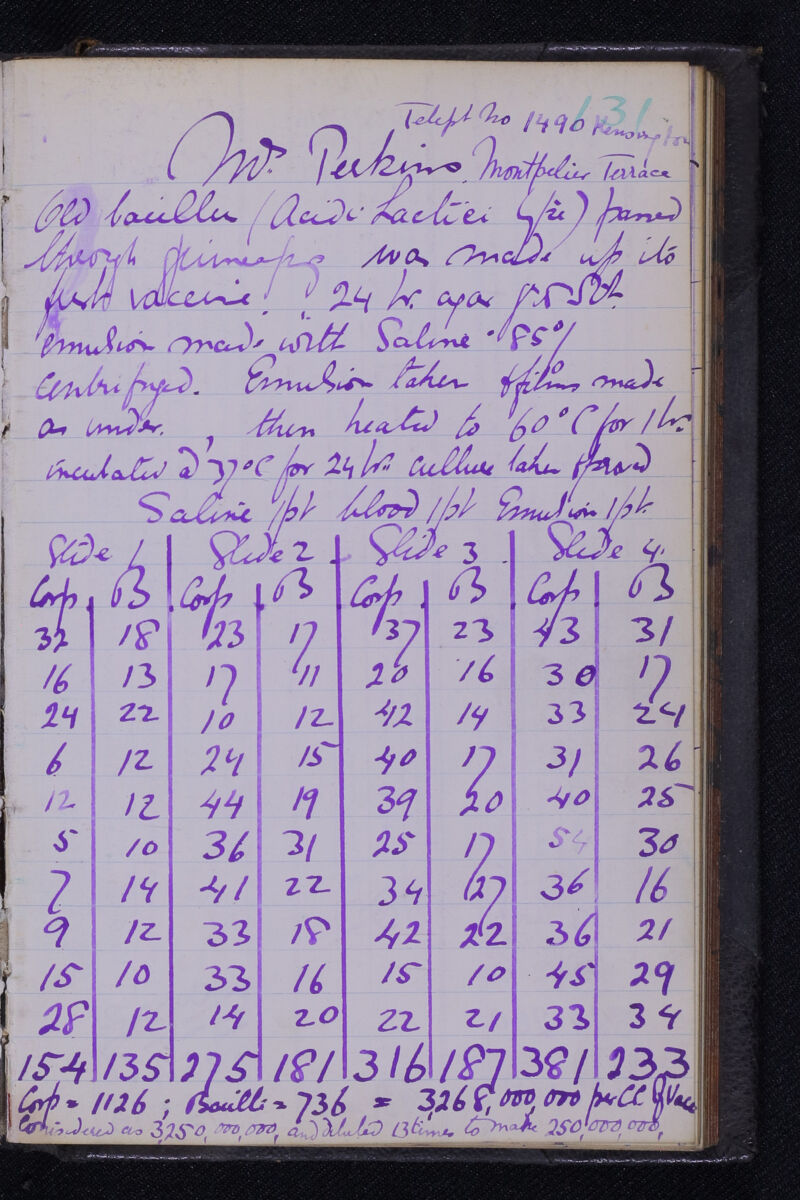 131
Teleph No 1490 Kensington
Mr Perkins. Montpelier Terrace
Old bacillus (Acidi Lactici type) passed
through guineapig was made up into
fresh vaccine. 24 hr. agar
emulsion made with Saline .85%
centrifuged. Emulsion taken & films made
as under. , then heated to 60°C for 1 hr.
incubated @ 37°C for 24 hrs culture taken & proved
Saline 1pt blood 1pt Emulsion 1pt.
Slide 1 Slide 2 Slide 3 Slide 4.
Corp. B Corp. B Corp. B Corp. B
32 18 23 17 37 23 43 31
16 13 17 11 20 16 30 17
24 22 10 12 42 14 33 24
6 12 24 15 40 17 31 26
12 12 44 19 39 20 40 25
5 10 36 31 25 17 54 30
7 14 41 22 34 27 36 16
9 12 33 18 42 22 36 21
15 10 33 16 15 10 45 29
28 12 14 20 22 21 33 34
154 135 275 181 316 187 381 233
Corp = 1126 ; Bacilli = 736 = 3,268,000,000 per CC of Vacc
Considered as 3,250,000,000, and diluted 13 times to make 250,000,000,